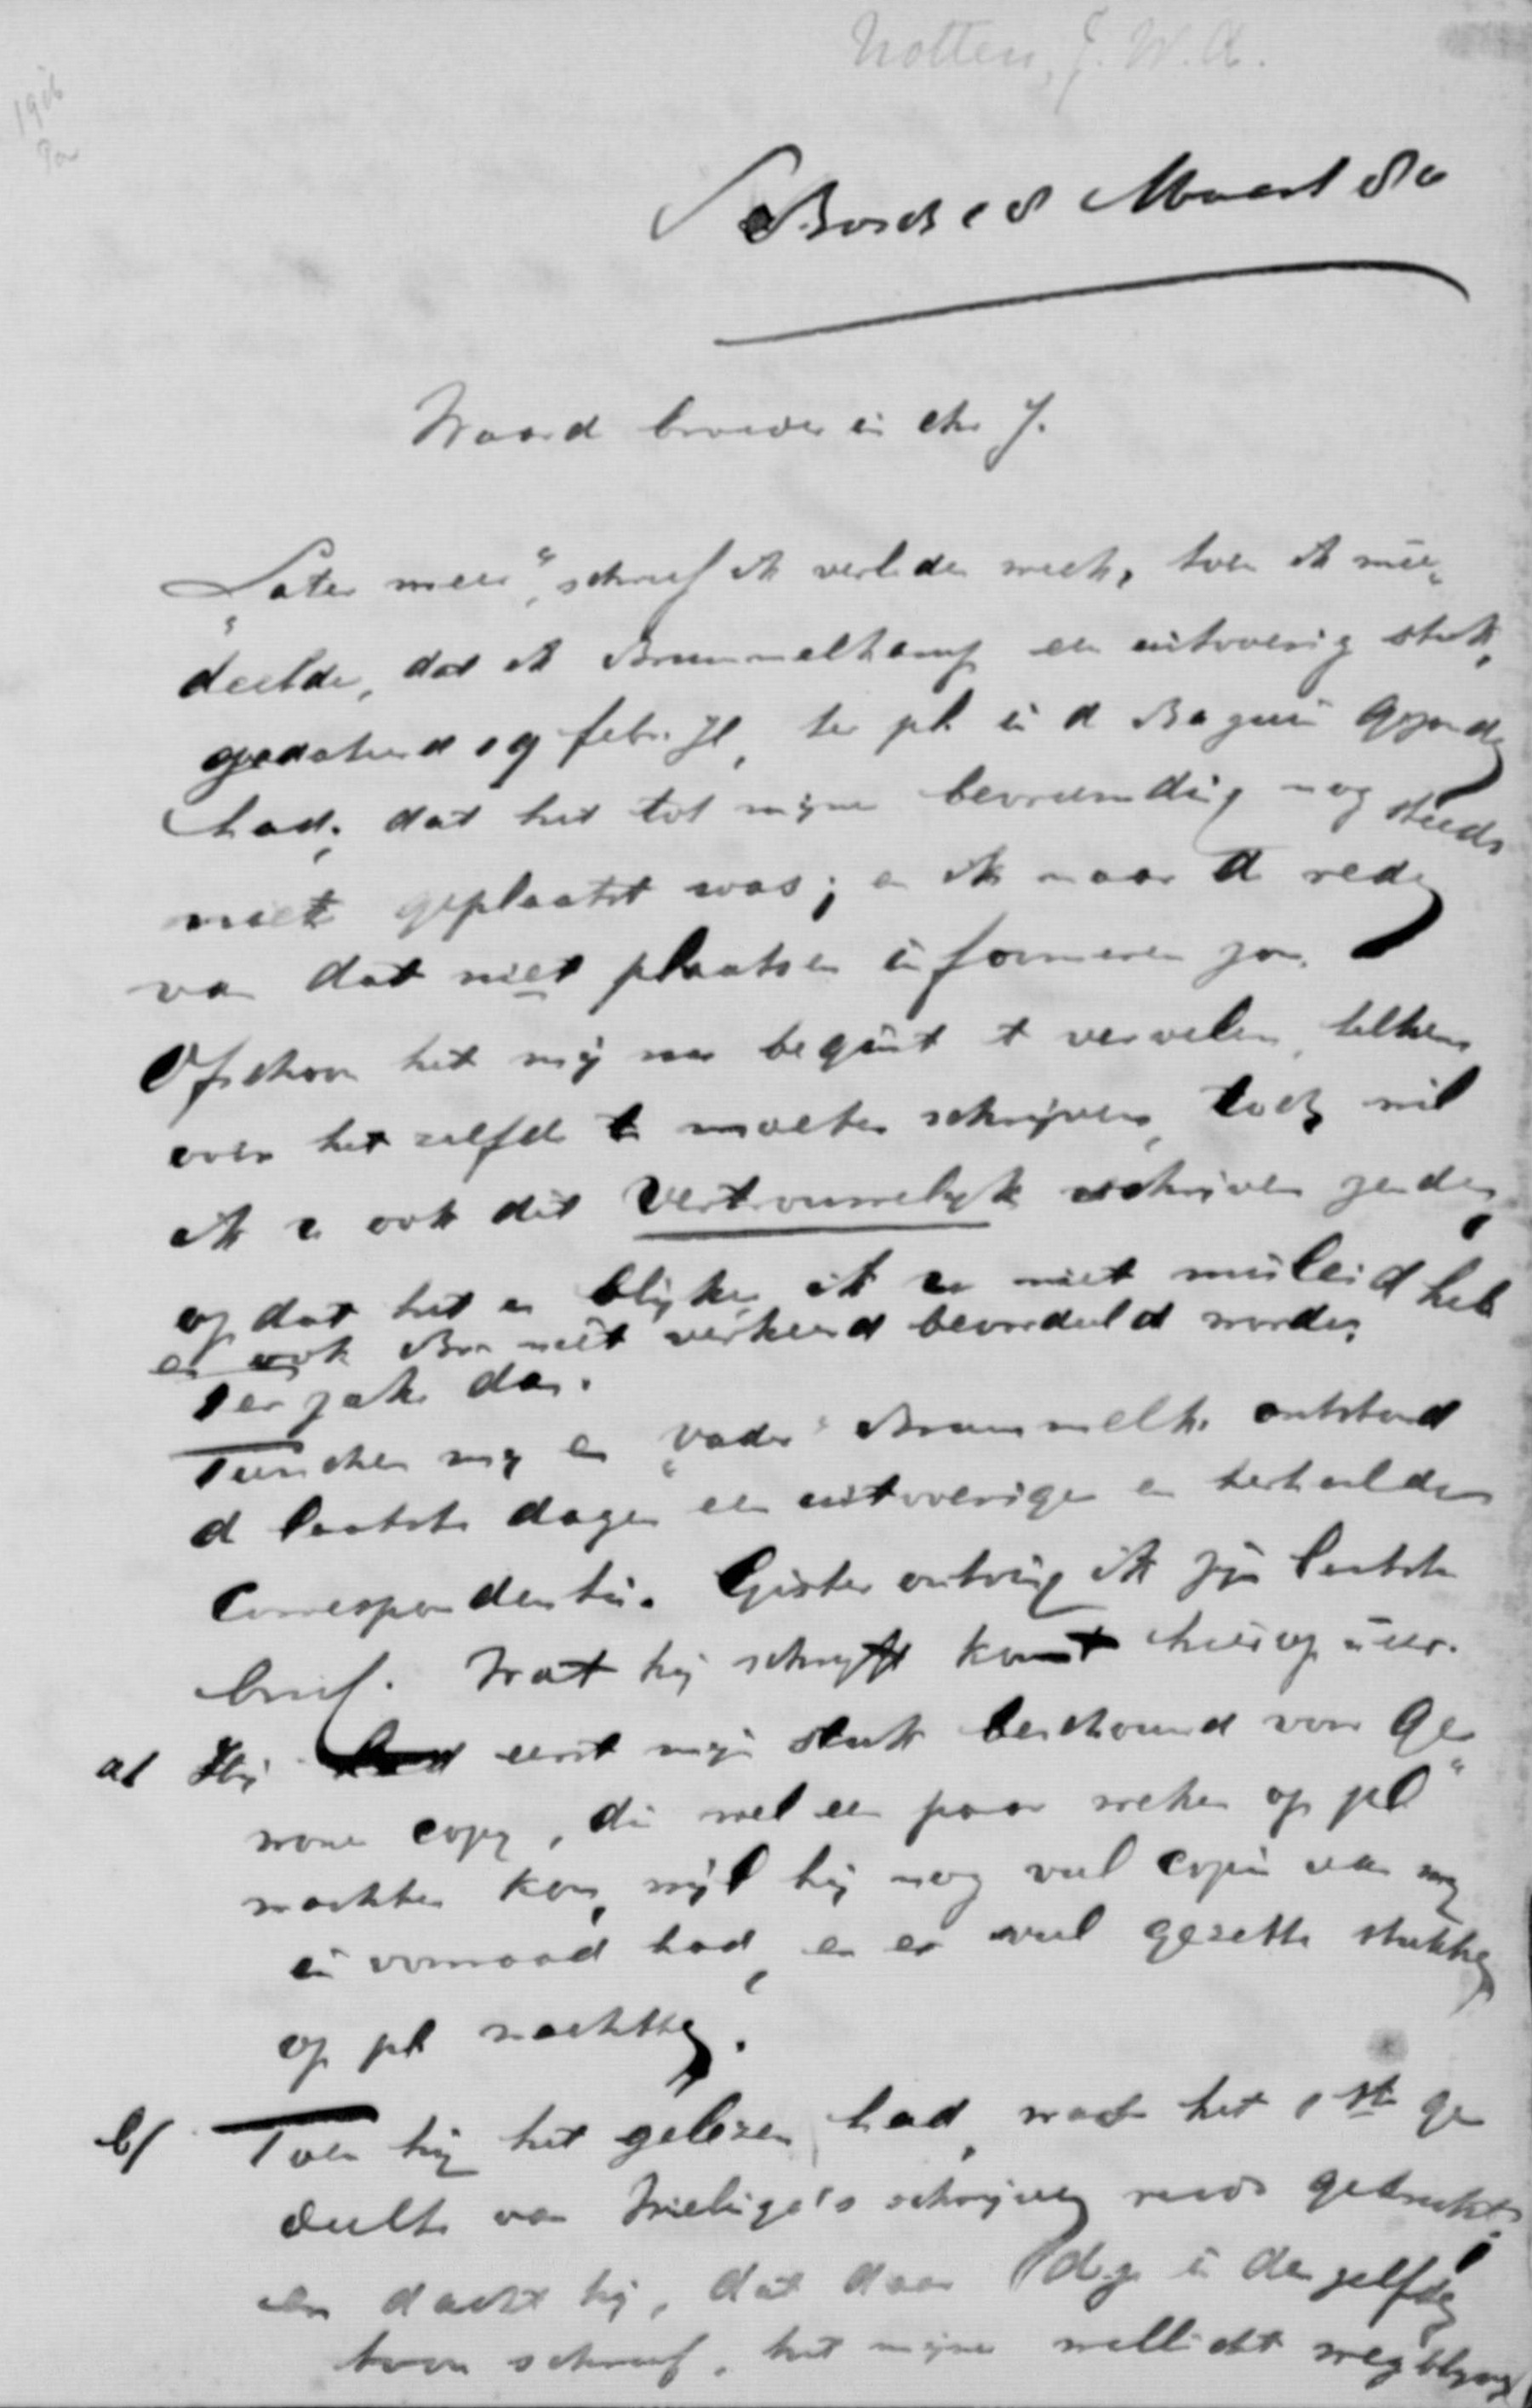 Notten, J. W. A.
1906
S Bosch 18 Maart 80
Waard broeder in chr J.
"Later meer", schreef ik verleden week, toen ik mee-
deelde, dat ik Brummelkamp een uitvoerig stuk,
gedateerd 19 febr. jl, ter pl in d Bazuin gezonden
had; dat het tot mijne bevreemding nog steeds
niet geplaatst was; en ik naar d reden
van dat niet plaatsen informeren zou.
Ofschoon het mij nu begint t vervelen, telkens
over het zelfde te moeten schrijven, toch wil
ik u ook dit vertrouwelijk schrijven zenden,
opdat het u blijke, ik u niet misleid heb
en ook Br. niet verkeerd beoordeeld worde.
Ter zake dan.
Tusschen mij en "vader" Brummelk. ontstond
d laatste dagen een uitvoerige en herhaalde
Correspondentie. Gister ontving ik zijn laatste
brief. Wat hij schrijft komt hierop neer.
a/ Hij had eerst mijn stuk beschouwd voor "ge
wone copy, die wel een paar weken op pl"
wachten kon, wijl hij nog veel copie van mij
in voorraad had, en er veel gezette stukken
op pl wachtten.
b/ Toen hij het gelezen had, was het 1ste ge
deelte van Wielinga's schrijven reeds gedrukt;
en dacht hij, dat daar deze in denzelfden
toon schreef, het mijne wellicht wegblijven